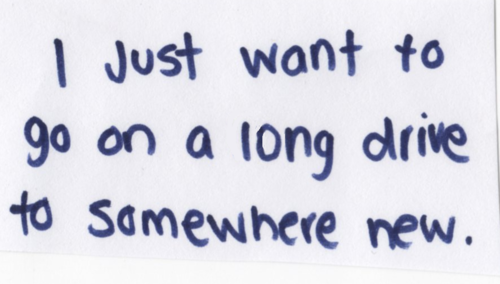 I Just want to
go on a long drive
to somewhere new.